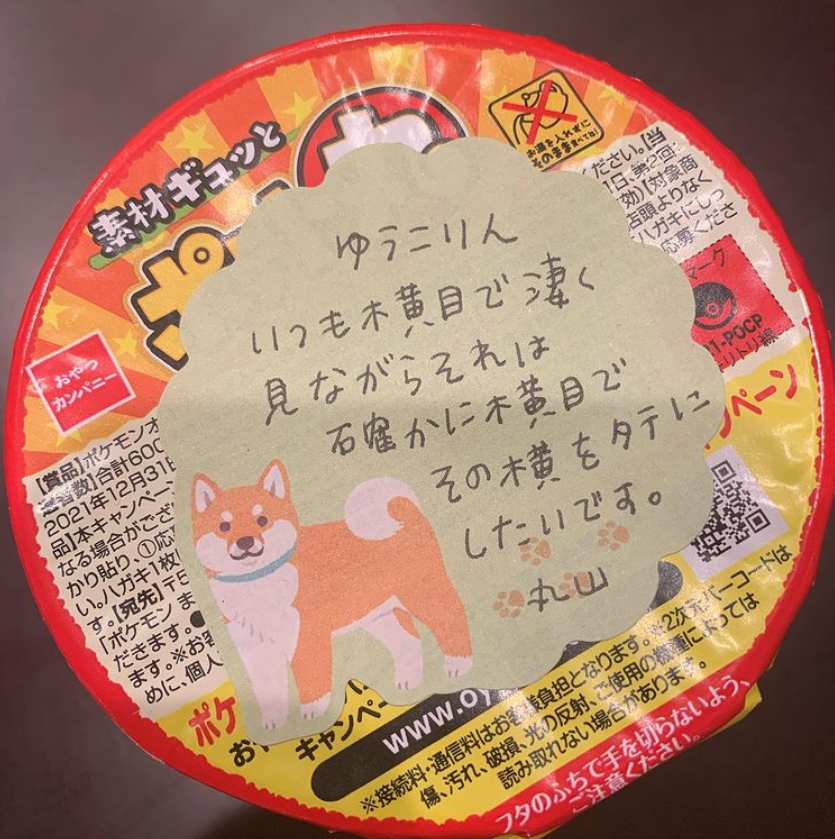 素材ギュッと
お湯を入れずに
そのまま食べてね!
おやつ
カンパニー
ゆうこりん
いつも横黄目で凄く
見ながらそれは
確かに横黄目で
その横をタテに
したいです。
丸山
ださい。【当
1日、第2回:
効)【対象商
店頭よりなく
ハガキにしっ
応募くださ
マーク
1-POCP
キリトリ線
ペーン
【賞品】ポケモンオ
選者数】合計600
2021年12月31日
品】本キャンペーン
なる場合がござ
かり貼り、①応
い。ハガキ1枚
す。【宛先】〒5
「ポケモン ま
だきます。●
ます。※お客
めに、個人
ポケ
おや
キャンペー
www.oy
※接続料・通信料はお客様負担となります。※2次元バーコードは
傷、汚れ、破損、光の反射、ご使用の機種によっては
読み取れない場合があります。
フタのふちで手を切らないよう、
ご注意ください。